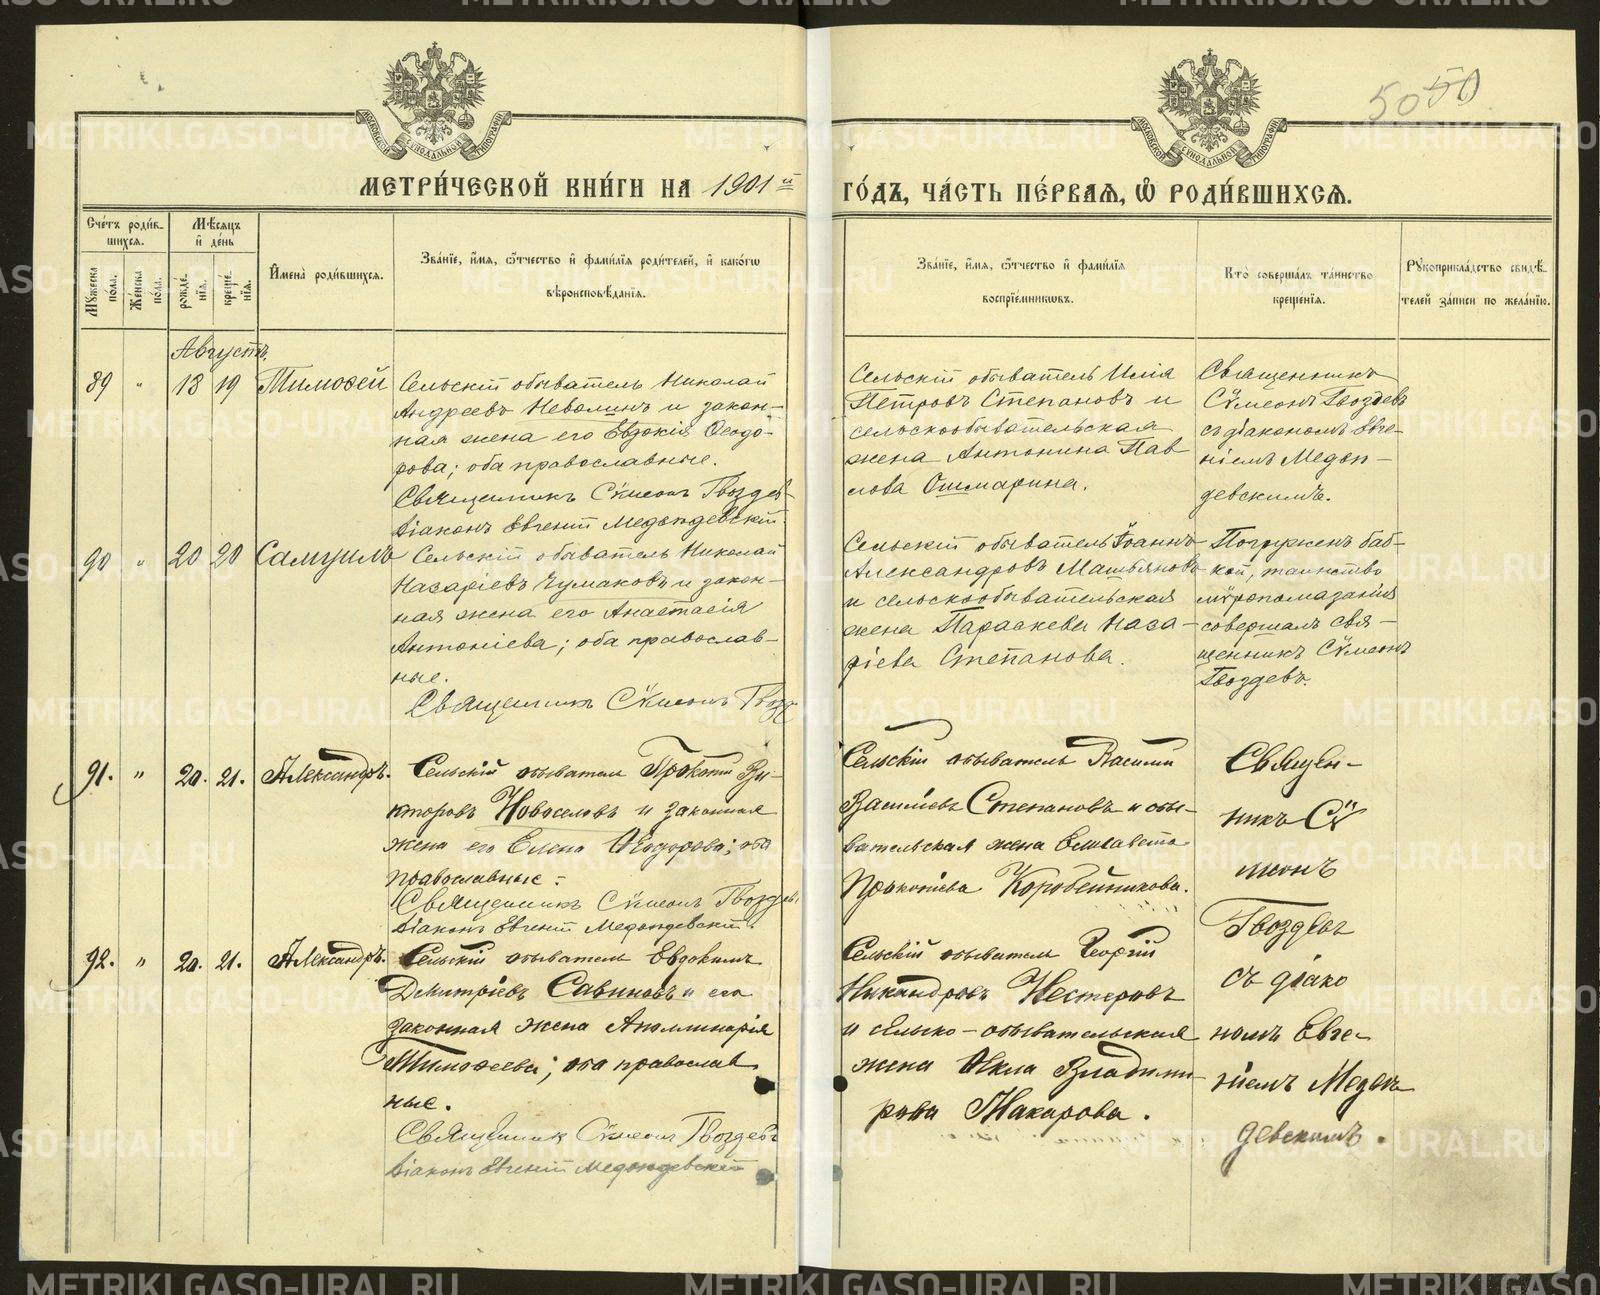 50 50
МОСКОВСКОЙ СѴНОДАЛЬНОЙ ТИПОГРАФІИ
МОСКОВСКОЙ СѴНОДАЛЬНОЙ ТИПОГРАФІИ
МЕТРИ́ЧЕСКОЙ КНИ́ГИ НА 1901й
ГО́ДЪ, ЧА́СТЬ ПЕ́РВАѦ, Ѡ҆ РОДИ́ВШИХСѦ.
Сче́тъ роди́в-
шихсѧ.
Мꙋжеска по́ла.
Же́нска по́ла.
Мѣ́сѧцъ
и҆ де́нь
рожде́-
нїѧ.
креще́-
нїѧ.
И҆мена̀ роди́вшихсѧ.
Зва́нїе, и҆́мѧ, ѻ҆́тчество и҆ фами́лїѧ роди́телей, и҆ како́гѡ
вѣроисповѣ́данїѧ.
Зва́нїе, и҆́мѧ, ѻ҆́тчество и҆ фами́лїѧ
воспрїе́мникѡвъ.
Кто̀ соверша́лъ та́инство
креще́нїѧ.
Рꙋкоприкла́дство свидѣ́-
телей за́писи по жела́нїю.
Августъ.
89 " 13 19 Тимоѳей
Сельскій обыватель Николай
Андреевъ Неволинъ и закон-
ная жена его Евдокія Ѳеодо-
рова; оба православные.
Священникъ Сѵмеонъ Гвоздев
Діаконъ Евгеній
Сельскій обыватель Илія
Петровъ Степановъ и
сельскообывательская
жена Антонина Пав
лова Ошмарина.
Священникъ
Сѵмеонъ Гвоздевъ
съ діакономъ Евге-
ніемъ
девскимъ.
90 " 20 20 Самуилъ
Сельскій обыватель Николай
Назаріевъ Чумаковъ и закон-
ная жена его Анастасія
Антоніева; оба православ-
ные.
Священникъ Сѵмеонъ Гвозд
Сельскій обыватель Іоаннъ
Александровъ
и сельскообывательская
жена Параскева Наза-
ріева Степанова.
Погруженъ баб-
кой, таинство
мѵропомазанія
совершалъ свя-
щенникъ Сѵмеонъ
Гвоздевъ.
91. " 20. 21. Александръ.
Сельскій обыватель Прокопій Ви-
кторовъ Новоселовъ и законная
жена его Елена Ѳеодорова; оба
православные.
Священникъ Сѵмеонъ Гвоздев.
Діаконъ Евгеній
Сельскій обыватель Василій
Василіевъ Степановъ и обы-
вательская жена Елисавета
Прокопіева Коробейникова.
Священ-
никъ Сѵ
меонъ
Гвоздевъ
съ діако
номъ Евге-
ніемъ
девскимъ.
92. " 20. 21. Александръ.
Сельскій обыватель Евдокимъ
Димитріевъ Савиновъ и его
законная жена Аполлинарія
Тимоѳеева; оба православ
ные.
Священник Сѵмеон Гвоздевъ
Діаконъ Евгеній
Сельскій обыватель Георгій
Никандровъ Нестеровъ
и сельско-обывательская
жена Ѳекла Владими-
рова Макарова.
METRIKI.GASO-URAL.RU